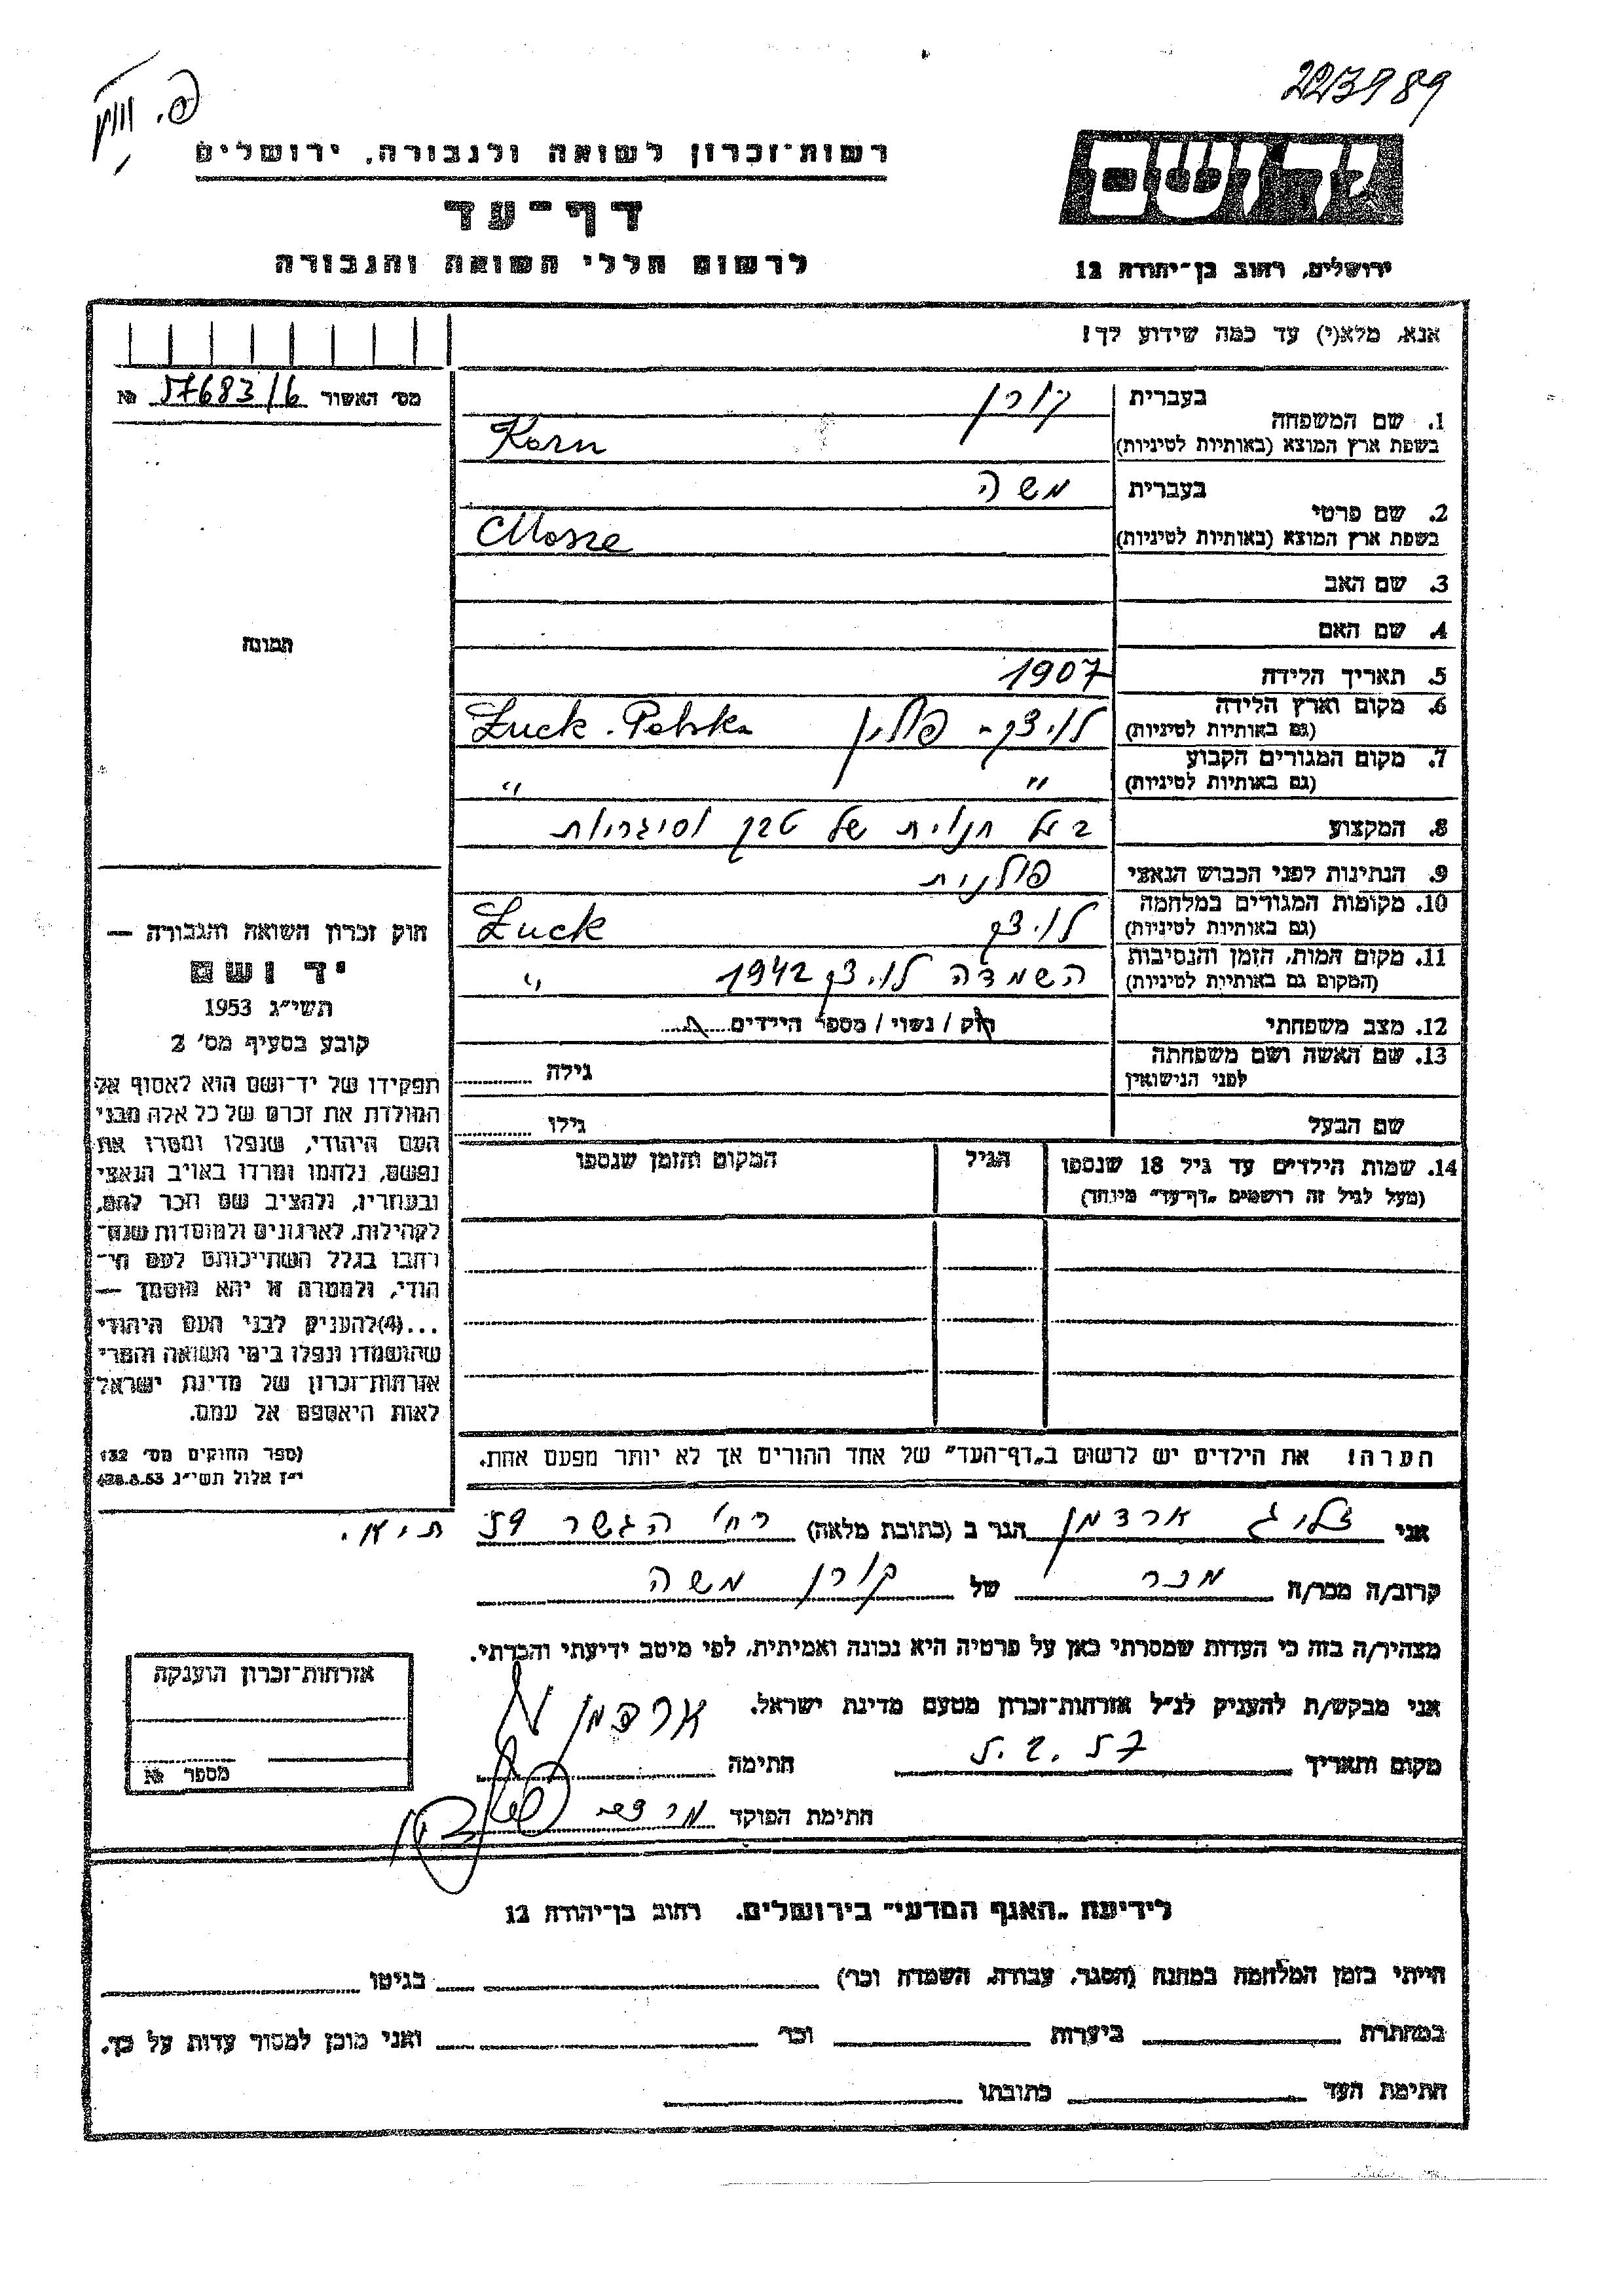 223989
פ. ווק
יד ושם
ירושלים, רחוב בן־יהודה 12
רשות־זכרון לשואה ולגבורה, ירושלים
דף־עד
לרשום חללי השואה והגבורה
אנא, מלא(י) עד כמה שידוע לך!
מס׳ האשור 57683/6 №
1. שם המשפחה
בעברית קורן
בשפת ארץ המוצא (באותיות לטיניות) Korn
2. שם פרטי
בעברית משה
בשפת ארץ המוצא (באותיות לטיניות) Mosze
3. שם האב
4. שם האם
5. תאריך הלידה 1907
6. מקום וארץ הלידה
(גם באותיות לטיניות) לוצק - פולין Łuck. Polska
7. מקום המגורים הקבוע
(גם באותיות לטיניות) " "
8. המקצוע בעל חנות של טבק וסיגריות
9. הנתינות לפני הכבוש הנאצי פולנית
10. מקומות המגורים במלחמה
(גם באותיות לטיניות) לוצק Łuck
11. מקום המות, הזמן והנסיבות
(המקום גם באותיות לטיניות) השמדה לוצק 1942 "
12. מצב משפחתי רוק / נשוי / מספר הילדים
13. שם האשה ושם משפחתה
לפני הנישואין
גילה
שם הבעל
גילו
14. שמות הילדים עד גיל 18 שנספו
(מעל לגיל זה רושמים „דף־עד" מיוחד)
הגיל
המקום והזמן שנספו
הערה! את הילדים יש לרשום ב„דף־העד" של אחד ההורים אך לא יותר מפעם אחת.
תמונה
חוק זכרון השואה והגבורה —
יד ושם
תשי״ג 1953
קובע בסעיף מס׳ 2
תפקידו של יד־ושם הוא לאסוף אל
המולדת את זכרם של כל אלה מבני
העם היהודי, שנפלו ומסרו את
נפשם, נלחמו ומרדו באויב הנאצי
ובעוזריו, ולהציב שם וזכר להם,
לקהילות, לארגונים ולמוסדות שנח־
רבו בגלל השתייכותם לעם הי־
הודי, ולמטרה זו יהא מוסמך —
...(4)להעניק לבני העם היהודי
שהושמדו ונפלו בימי השואה והמרי
אזרחות־זכרון של מדינת ישראל
לאות היאספם אל עמם.
(ספר החוקים מס׳ 132
י״ז אלול תשי״ג 28.8.53)
אני זליג ארדמן הגר ב (כתובת מלאה) רח׳ הגשר 59 ת"א.
קרוב/ה מכר/ה מכר של קורן משה
מצהיר/ה בזה כי העדות שמסרתי כאן על פרטיה היא נכונה ואמיתית, לפי מיטב ידיעתי והכרתי.
אני מבקש/ת להעניק לנ״ל אזרחות־זכרון מטעם מדינת ישראל.
מקום ותאריך 5.2.57 חתימה ארדמן
חתימת הפוקד
אזרחות־זכרון הוענקה
מספר №
לידיעת „האגף המדעי" בירושלים, רחוב בן־יהודה 12
הייתי בזמן המלחמה במחנה (הסגר, עבודה, השמדה וכו׳) בגיטו
במחתרת ביערות וכו׳ ואני מוכן למסור עדות על כך.
חתימת העד כתובתו